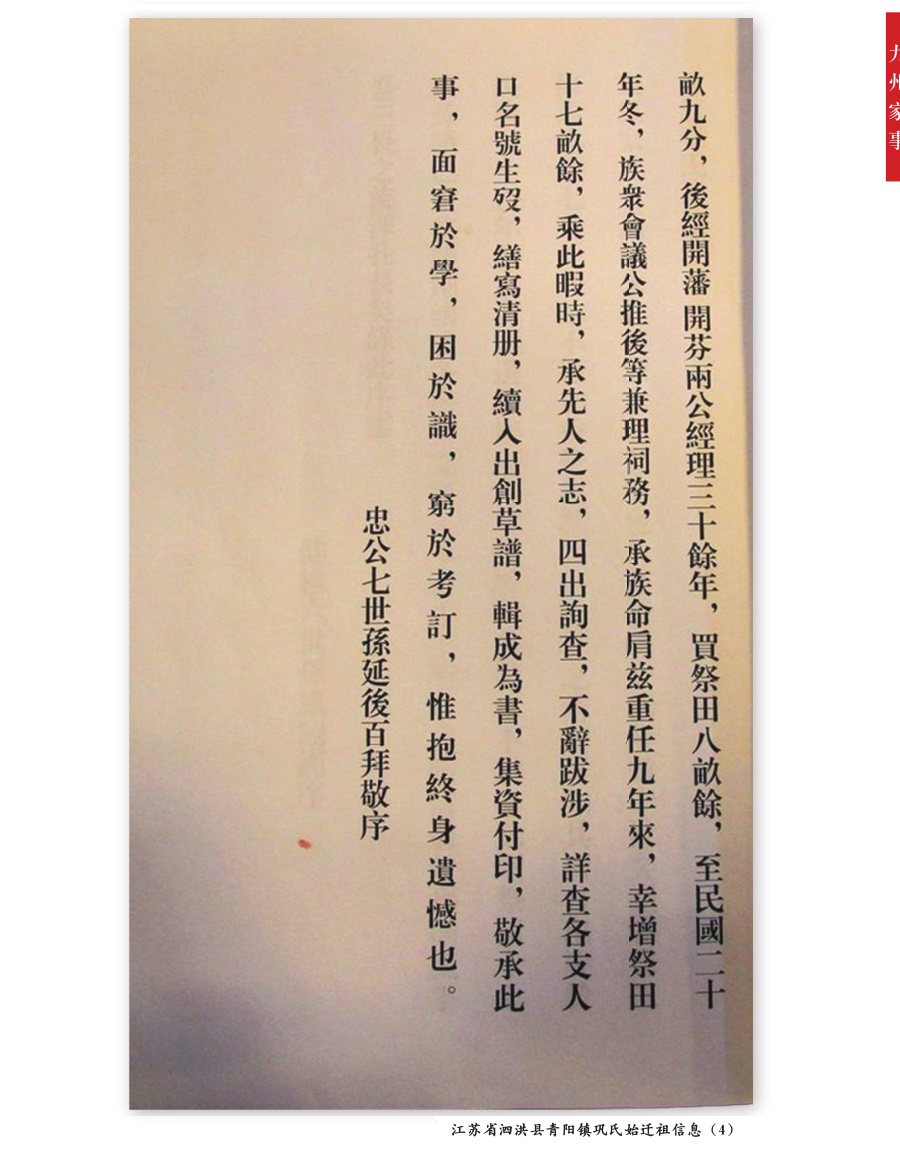 畝九分，後經開藩開芬兩公經理三十餘年，買祭田八畝餘，至民國二十
年冬，族衆會議公推後等兼理祠務，承族命肩兹重任九年來，幸增祭田
十七畝餘，乘此暇時，承先人之志，四出詢查，不辭跋涉，詳查各支人
口名號生歿，繕寫清册，續入出創草譜，輯成為書，集資付印，敬承此
事，面窘於學，困於識，窮於考訂，惟抱終身遺憾也。
忠公七世孫延後百拜敬序
九州家事
江苏省泗洪县青阳镇巩氏始迁祖信息（4）